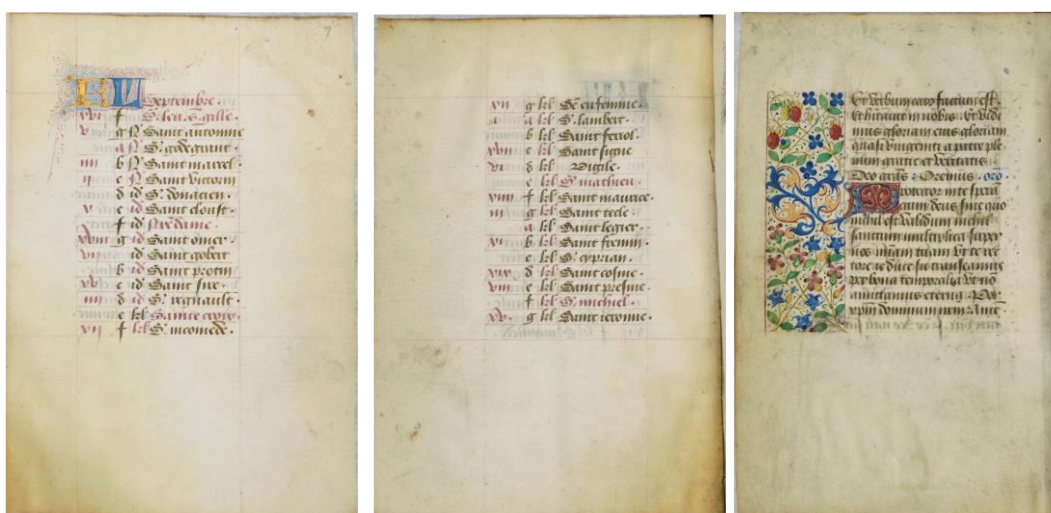 7
KL Septembre.
xvi f S. leu. S. gille.
v g N Saint antonine
a N S. godegrant.
xiii b N Saint marcel.
ii c N Saint victorin
d id S. donacien.
e id Saint cloust.
f id N're dame.
xviii g id Saint omer.
vii id Saint gobert
b id Saint protin
xv c id Saint sire.
iiii d id S. regnault.
e kl Sainte croix.
xii f kl S. nicomede.
xii g kl Se eufemme.
a kl S. lambert.
b kl Saint ferriol.
xvii c kl Saint signe
vi d kl Vigile.
e kl S. mathieu.
f kl Saint maurice.
iii g kl Saint tecle.
a kl Saint legier.
xi b kl Saint fremin.
c kl S. cyprian.
xix d kl Saint cosme.
viii e kl Saint
f kl S. michiel.
xvi g kl Saint ierome.
Et verbum caro factum est.
Et habitavit in nobis. Et vidi
mus gloriam eius gloriam
quasi unigeniti a patre ple
num gratie et veritatis.
Deo gratias. Oremus. oro
Protector in te speran
cium deus sine quo
nichil est validum nichel
sanctum multiplica super
nos miam tuam ut te rec
tore te duce sic transeamus
per bona temporalia ut non
amittamus eterna. Per
xpm dominum nostrum. Amen